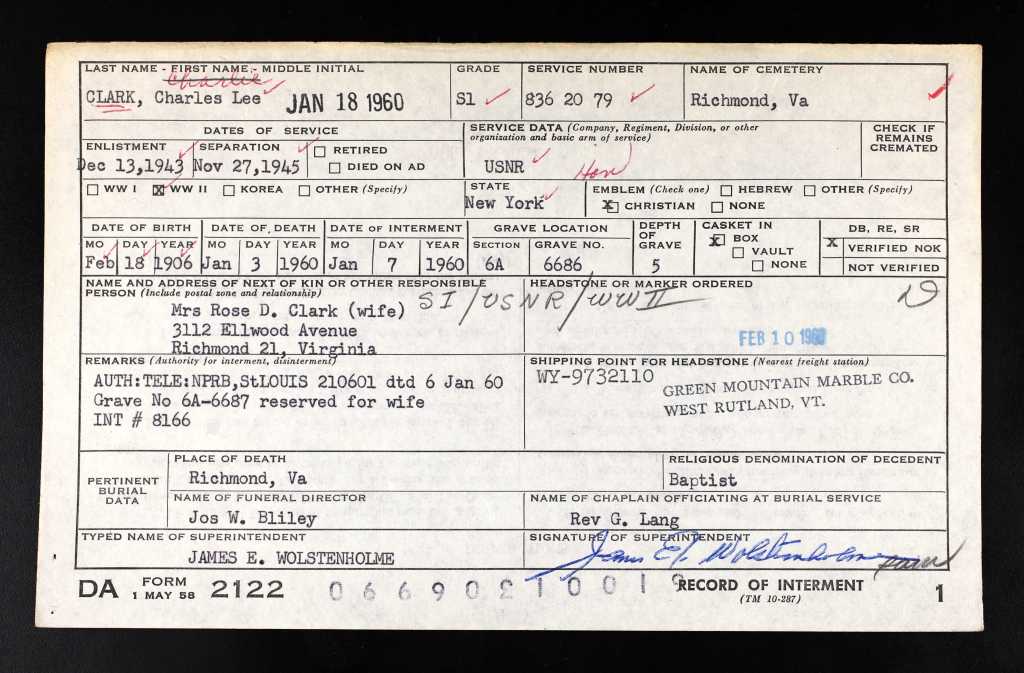 LAST NAME - FIRST NAME - MIDDLE INITIAL
Charlie
CLARK, Charles Lee
JAN 18 1960
GRADE
S1
SERVICE NUMBER
836 20 79
NAME OF CEMETERY
Richmond, Va
DATES OF SERVICE
ENLISTMENT
Dec 13,1943
SEPARATION
Nov 27,1945
RETIRED
DIED ON AD
SERVICE DATA (Company, Regiment, Division, or other
organization and basic arm of service)
USNR
Hon
CHECK IF
REMAINS
CREMATED
WW I
X WW II
KOREA
OTHER (Specify)
STATE
New York
EMBLEM (Check one)
HEBREW
OTHER (Specify)
X CHRISTIAN
NONE
DATE OF BIRTH
MO DAY YEAR
Feb 18 1906
DATE OF DEATH
MO DAY YEAR
Jan 3 1960
DATE OF INTERMENT
MO DAY YEAR
Jan 7 1960
GRAVE LOCATION
SECTION GRAVE NO.
6A 6686
DEPTH
OF
GRAVE
5
CASKET IN
X BOX
VAULT
NONE
DB, RE, SR
X VERIFIED NOK
NOT VERIFIED
NAME AND ADDRESS OF NEXT OF KIN OR OTHER RESPONSIBLE
PERSON (Include postal zone and relationship)
Mrs Rose D. Clark (wife)
3112 Ellwood Avenue
Richmond 21, Virginia
HEADSTONE OR MARKER ORDERED
S1/USNR/WW II
FEB 10 1960
REMARKS (Authority for interment, disinterment)
AUTH:TELE:NPRB,StLOUIS 210601 dtd 6 Jan 60
Grave No 6A-6687 reserved for wife
INT # 8166
SHIPPING POINT FOR HEADSTONE (Nearest freight station)
WY-9732110
GREEN MOUNTAIN MARBLE CO.
WEST RUTLAND, VT.
PERTINENT
BURIAL
DATA
PLACE OF DEATH
Richmond, Va
RELIGIOUS DENOMINATION OF DECEDENT
Baptist
NAME OF FUNERAL DIRECTOR
Jos W. Bliley
NAME OF CHAPLAIN OFFICIATING AT BURIAL SERVICE
Rev G. Lang
TYPED NAME OF SUPERINTENDENT
JAMES E. WOLSTENHOLME
SIGNATURE OF SUPERINTENDENT
James E. Wolstenholme
DA FORM 2122
1 MAY 58
RECORD OF INTERMENT
(TM 10-287)
1